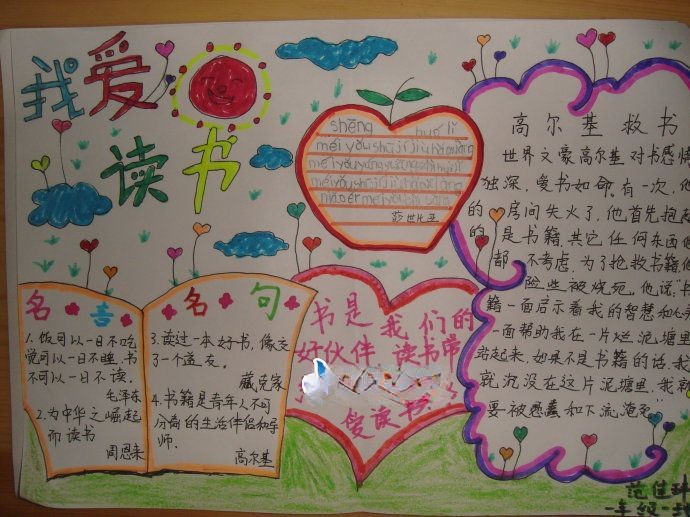 我爱
读书
shēng huó lǐ
méi yǒu shū jí jiù
莎士比亚
高尔基救书
世界文豪高尔基对书感情
独深,爱书如命,有一次,他
的房间失火了,他首先抱起
的是书籍,其它任何东西他
都不考虑.为了抢救书籍他
险些被烧死,他说“书
籍一面启示着我的智慧和心灵
一面帮助我在一片烂泥塘里
站起来,如果不是书籍的话,我
就沉没在这片泥塘里,我就
要被愚蠢和下流淹死”
名言
1.饭可以一日不吃
觉可以一日不睡,书
不可以一日不读。
毛泽东
2.为中华之崛起
而读书
周恩来
名句
3.读过一本好书,像交
了一个益友。
臧克家
4.书籍是青年人不可
分离的生活伴侣和导
师.
高尔基
书是我们的
好伙伴 读书
爱读书
范佳
一年级一